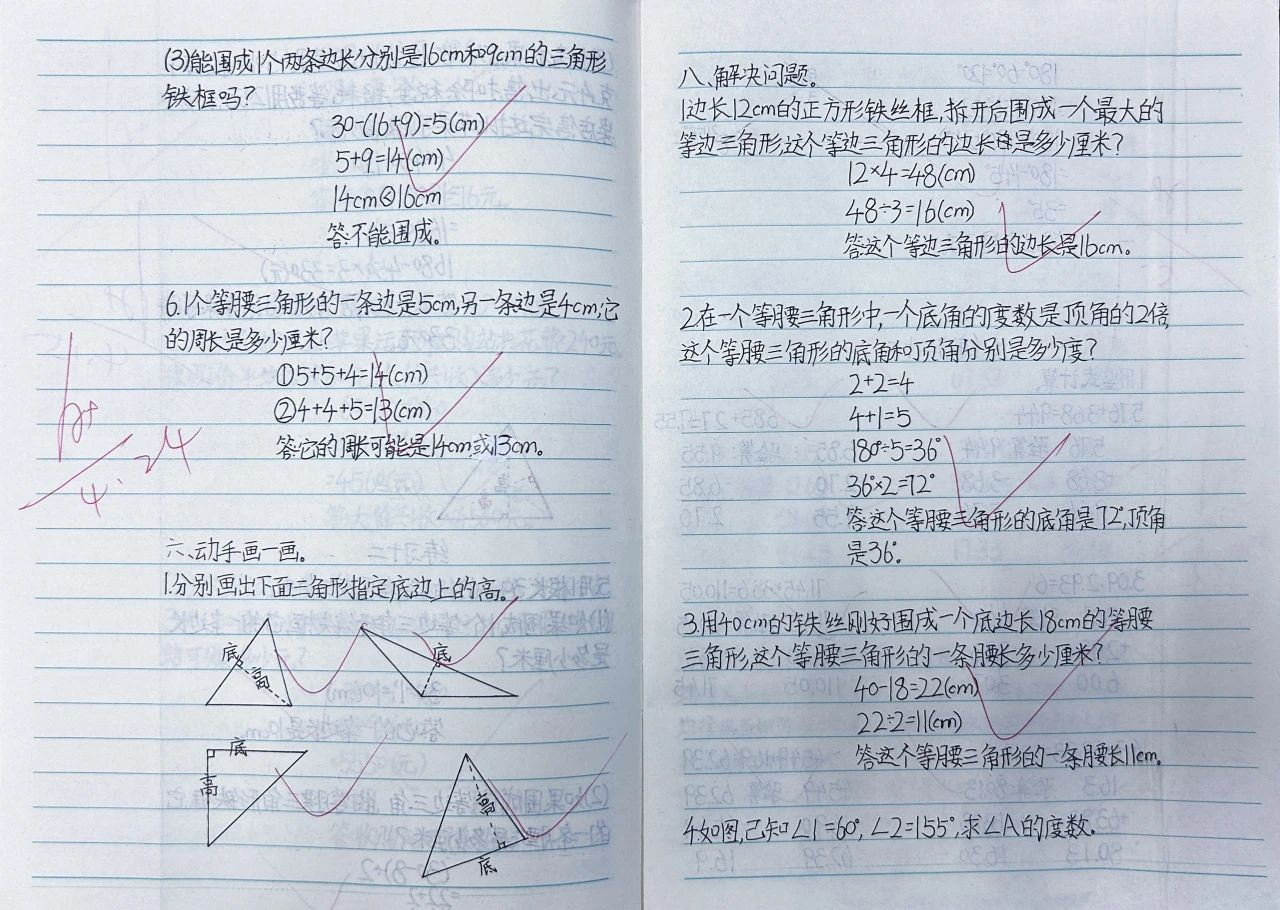 (3)能围成1个两条边长分别是16cm和9cm的三角形
铁框吗?
30-(16+9)=5(cm)
5+9=14(cm)
14cm<16cm
答:不能围成。
6.1个等腰三角形的一条边是5cm,另一条边是4cm,它
的周长是多少厘米?
①5+5+4=14(cm)
②4+4+5=13(cm)
答:它的周长可能是14cm或13cm。
六、动手画一画。
1.分别画出下面三角形指定底边上的高。
底
高
底
底
高
高
底
4.24
八、解决问题。
1.边长12cm的正方形铁丝框,拆开后围成一个最大的
等边三角形,这个等边三角形的边长是多少厘米?
12×4=48(cm)
48÷3=16(cm)
答:这个等边三角形的边长是16cm。
2.在一个等腰三角形中,一个底角的度数是顶角的2倍,
这个等腰三角形的底角和顶角分别是多少度?
2+2=4
4+1=5
180°÷5=36°
36°×2=72°
答:这个等腰三角形的底角是72°,顶角
是36°。
3.用40cm的铁丝刚好围成一个底边长18cm的等腰
三角形,这个等腰三角形的一条腰长多少厘米?
40-18=22(cm)
22÷2=11(cm)
答:这个等腰三角形的一条腰长11cm。
4.如图,已知∠1=60°,∠2=155°,求∠A的度数。